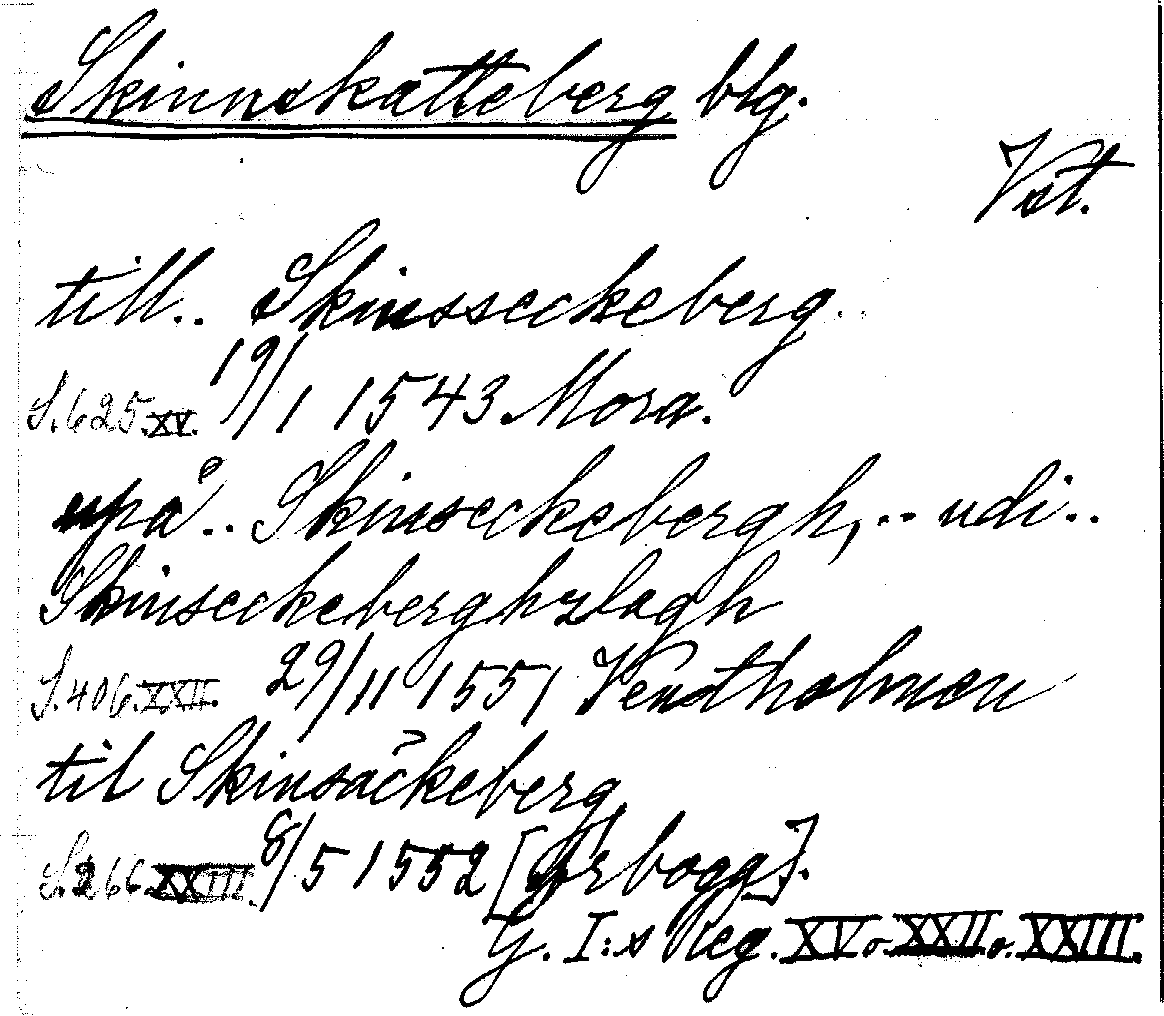 Skinnskatteberg blg.
Vst.
till.. Skinsseckeberg..
S. 625. XV. 19/1 1543 Mora.
upå.. Skinseckebergh, .. udi..
Skinseckeberghzlagh
S. 406. XXII. 29/11 1551 Vendtholmen
til Skinsäckeberg
S. 266 XXIII. 8/5 1552 [Arbogg].
G. I:s Reg. XV o. XXII o. XXIII.